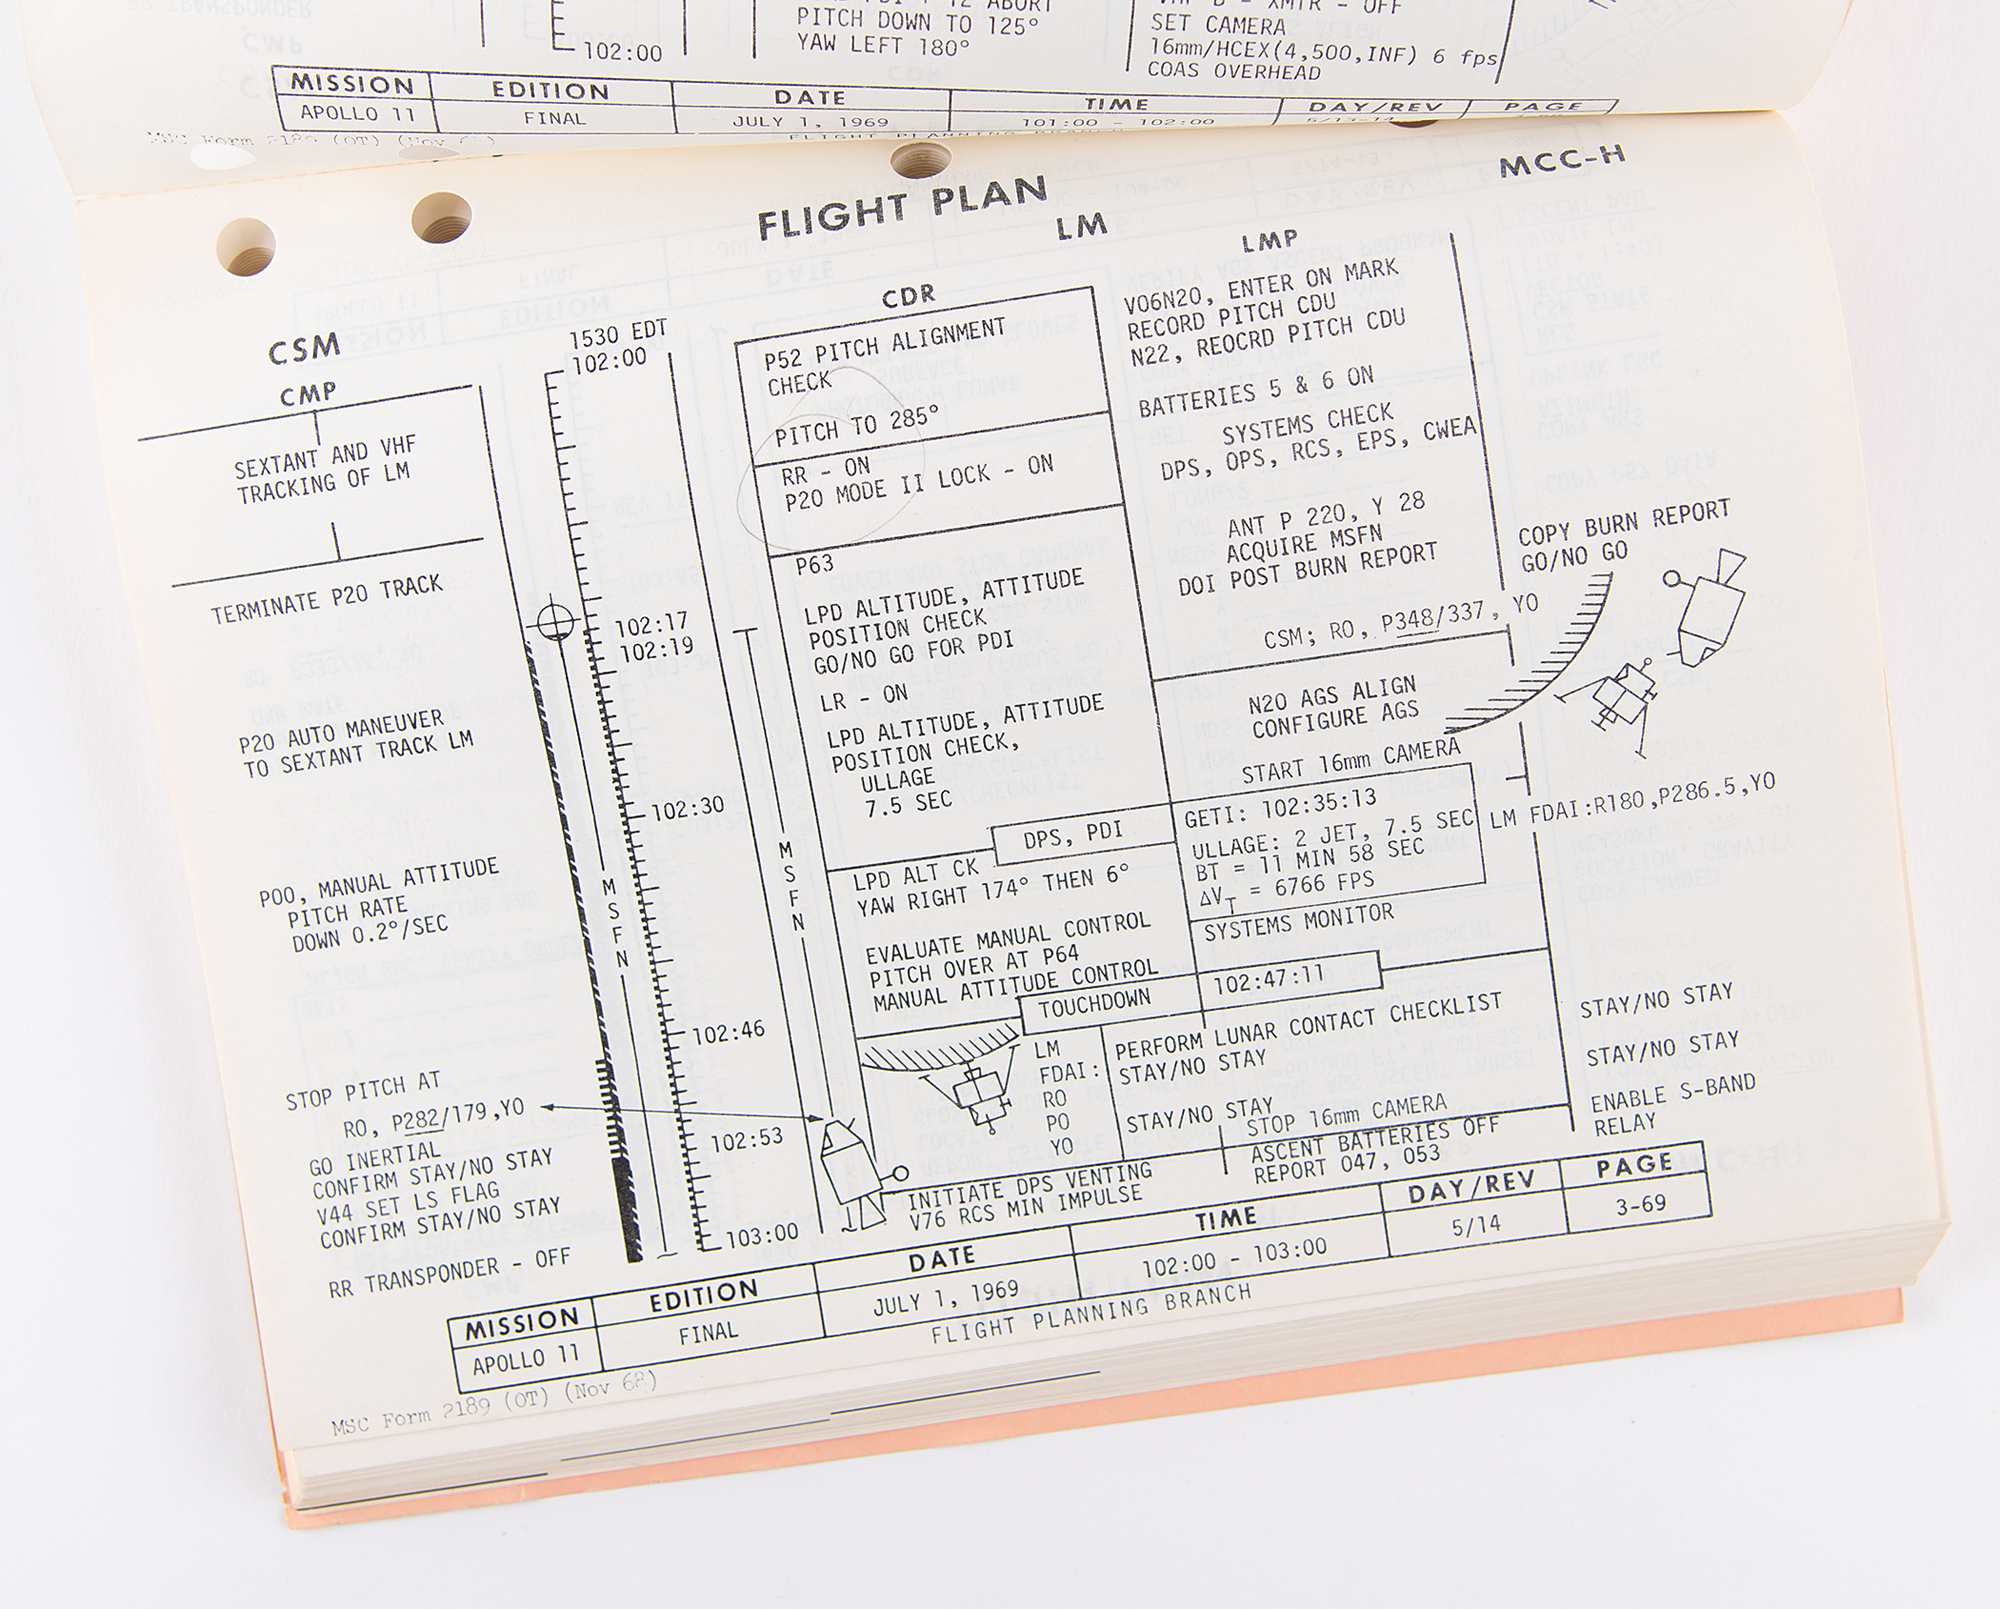 102:00
PITCH DOWN TO 125°
YAW LEFT 180°
SET CAMERA
16mm/HCEX(4,500,INF) 6 fps
COAS OVERHEAD
MISSION EDITION DATE TIME DAY/REV PAGE
APOLLO 11 FINAL JULY 1, 1969 101:00 - 102:00
MSC Form 2189 (OT) (Nov 68)
FLIGHT PLANNING BRANCH
FLIGHT PLAN
MCC-H
LM
CSM
CMP
SEXTANT AND VHF
TRACKING OF LM
TERMINATE P20 TRACK
P20 AUTO MANEUVER
TO SEXTANT TRACK LM
P00, MANUAL ATTITUDE
PITCH RATE
DOWN 0.2°/SEC
STOP PITCH AT
R0, P282/179,Y0
GO INERTIAL
CONFIRM STAY/NO STAY
V44 SET LS FLAG
CONFIRM STAY/NO STAY
RR TRANSPONDER - OFF
1530 EDT
102:00
102:17
102:19
102:30
MSFN
102:46
102:53
103:00
MSFN
CDR
P52 PITCH ALIGNMENT
CHECK
PITCH TO 285°
RR - ON
P20 MODE II LOCK - ON
P63
LPD ALTITUDE, ATTITUDE
POSITION CHECK
GO/NO GO FOR PDI
LR - ON
LPD ALTITUDE, ATTITUDE
POSITION CHECK,
ULLAGE
7.5 SEC
DPS, PDI
LPD ALT CK
YAW RIGHT 174° THEN 6°
EVALUATE MANUAL CONTROL
PITCH OVER AT P64
MANUAL ATTITUDE CONTROL
TOUCHDOWN
LM
FDAI:
R0
P0
Y0
INITIATE DPS VENTING
V76 RCS MIN IMPULSE
LMP
V06N20, ENTER ON MARK
RECORD PITCH CDU
N22, REOCRD PITCH CDU
BATTERIES 5 & 6 ON
SYSTEMS CHECK
DPS, OPS, RCS, EPS, CWEA
ANT P 220, Y 28
ACQUIRE MSFN
DOI POST BURN REPORT
CSM; R0, P348/337, Y0
N20 AGS ALIGN
CONFIGURE AGS
START 16mm CAMERA
GETI: 102:35:13
ULLAGE: 2 JET, 7.5 SEC
BT = 11 MIN 58 SEC
ΔVT = 6766 FPS
SYSTEMS MONITOR
102:47:11
PERFORM LUNAR CONTACT CHECKLIST
STAY/NO STAY
STAY/NO STAY
STOP 16mm CAMERA
ASCENT BATTERIES OFF
REPORT 047, 053
COPY BURN REPORT
GO/NO GO
LM FDAI:R180,P286.5,Y0
STAY/NO STAY
STAY/NO STAY
ENABLE S-BAND
RELAY
MISSION EDITION DATE TIME DAY/REV PAGE
APOLLO 11 FINAL JULY 1, 1969 102:00 - 103:00 5/14 3-69
FLIGHT PLANNING BRANCH
MSC Form 2189 (OT) (Nov 68)